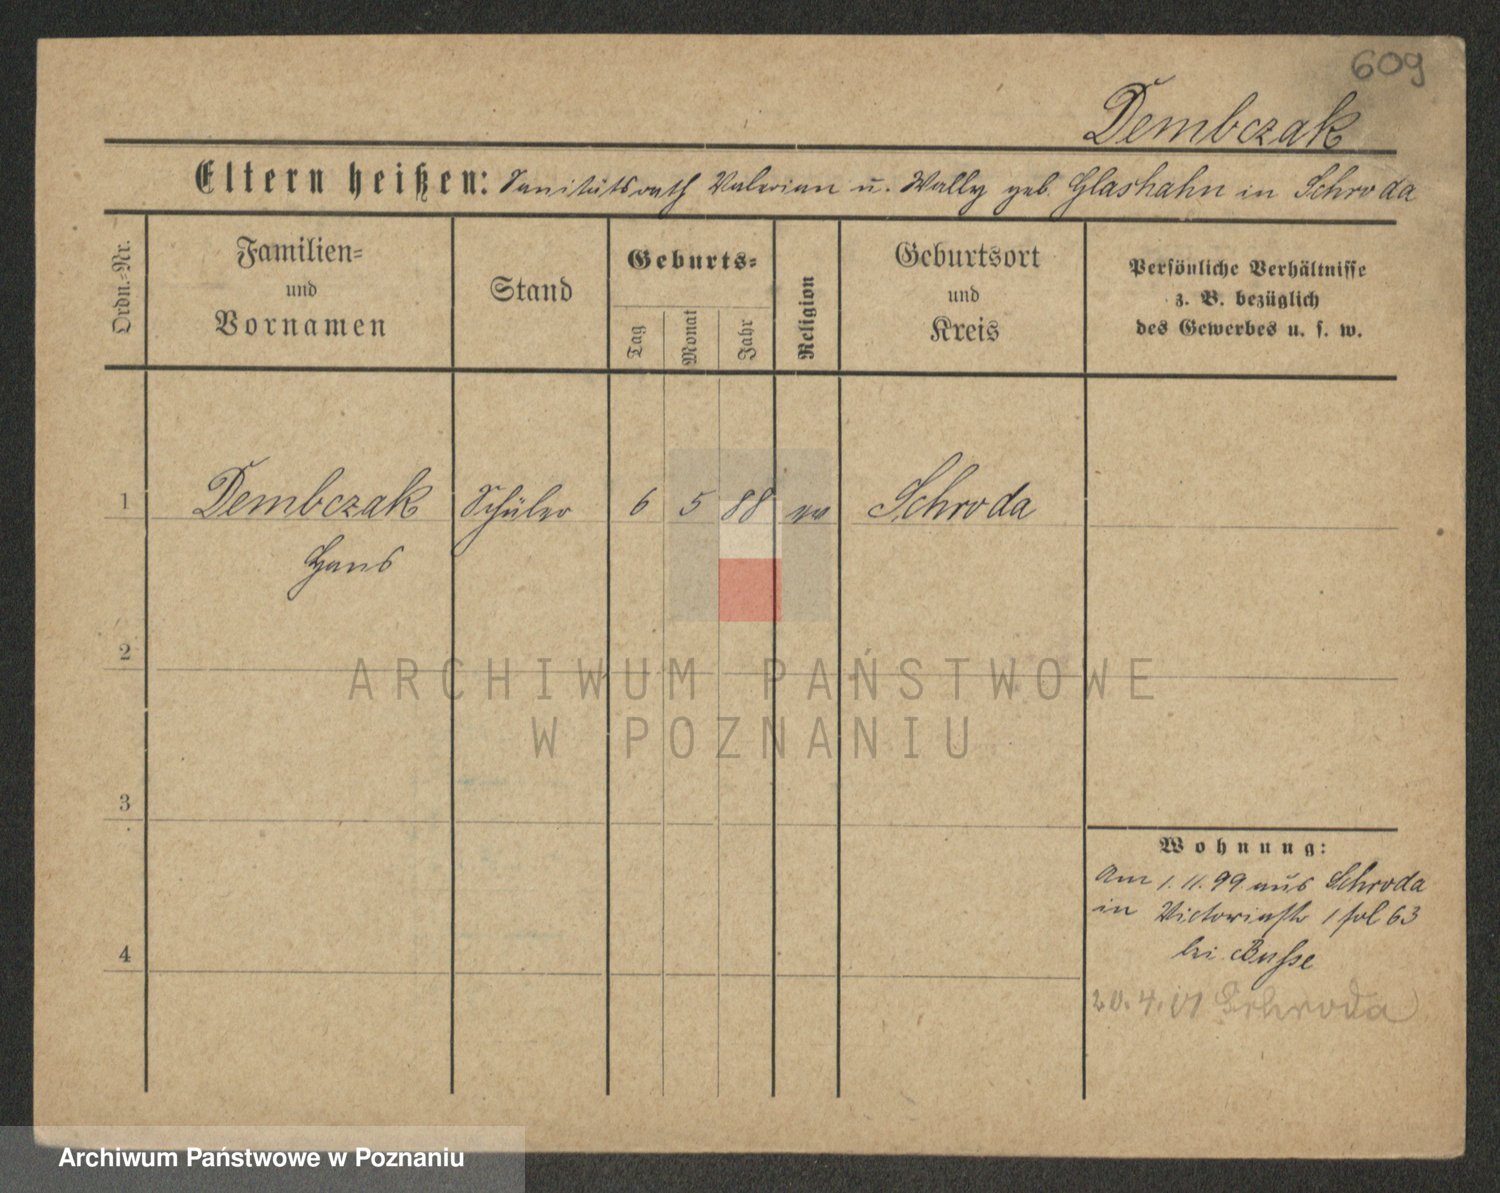 609
Dembczak
Eltern heißen: Sanitätsrath Valerian u. Wally geb. Glashahn in Schroda
Ordn.-Nr.
Familien-
und
Vornamen
Stand
Geburts-
Tag
Monat
Jahr
Religion
Geburtsort
und
Kreis
Persönliche Verhältnisse
z. B. bezüglich
des Gewerbes u. s. w.
1 Dembczak Schüler 6 5 88 ev Schroda
Hans
2
ARCHIWUM PAŃSTWOWE
W POZNANIU
3
4
Wohnung:
Am 1.11.99 aus Schroda
in Victoriastr 1 fol 63
bei Busse
20.4.01 Schroda
Archiwum Państwowe w Poznaniu